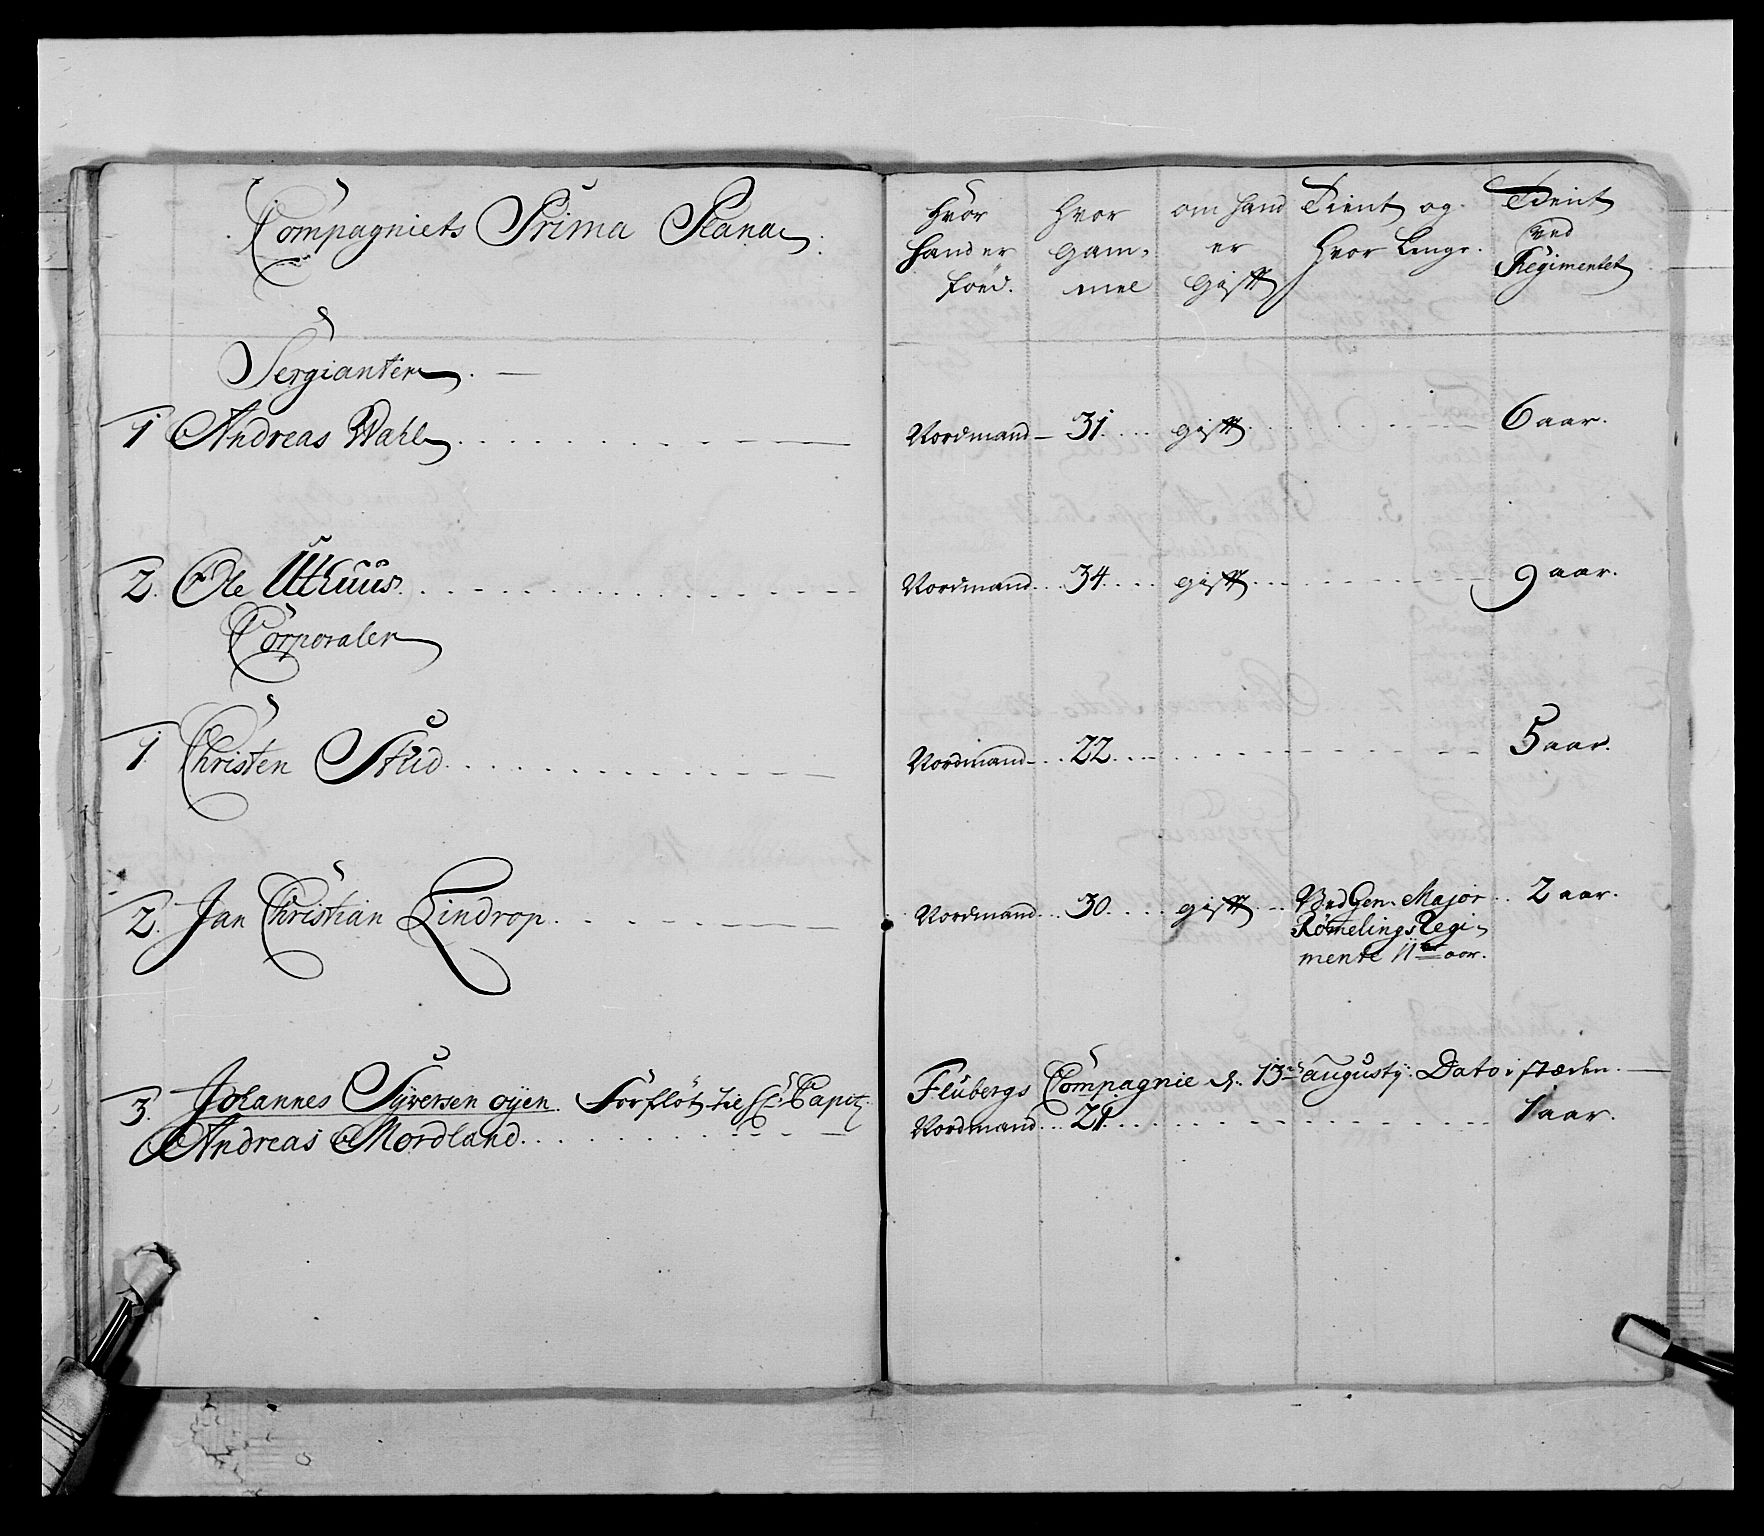 Compagniets Prima Plana
Hvor
Hand er
Föed.
Hvor
gam=
mel
om Hand
er
gift
Tient og
Hvor Lenge.
Tient
ved
Regimentet
Sergianter
1 Andreas Wahl Nordmand 31. gift 6 aar.
2. Ole Uthuus Nordmand 34. gift 9 aar.
Corporaler
1. Christen Stüd Nordmand 22. 5 aar.
2. Jan Christian Lindrop. Nordmand 30. gift Ved Gen. Major 2 aar.
Römelings Regi-
mente 11 aar.
3. Johannes Syversen öyen Forflöt til Capit Flubergs Compagnie d. 13 augusty. Dato i stæden.
Andreas Mordland Nordmand 21. 1 aar.